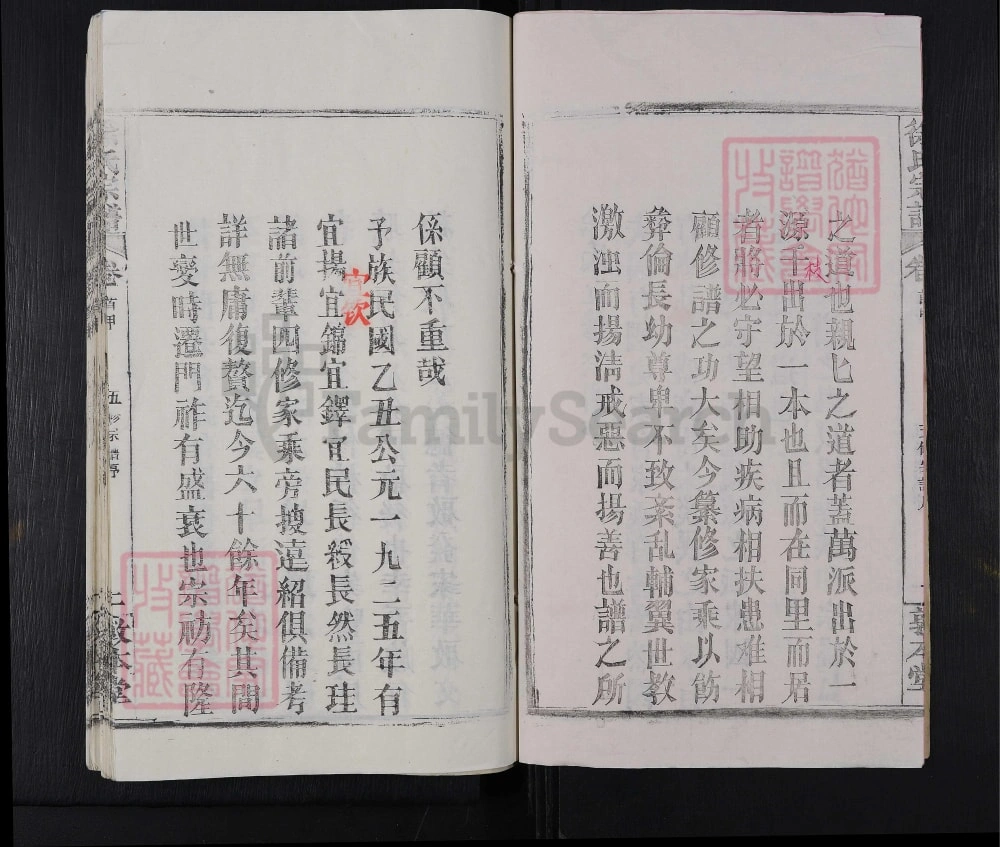 之道也親匕之道者蓋萬派出於一
源千出於一本也且而在同里而居
者將必守望相助疾病相扶患难相
顧修譜之功大矣今纂修家乘以飭
彜倫長幼尊卑不致紊乱輔翼世教
激浊而揚淸戒惡而揚善也譜之所
係顧不重哉
予族民國乙丑公元一九二五年有
宜揚宜錦宜鐸宜民長毅長然長珪
宜欽
諸前輩四修家乘旁搜遠紹俱備考
詳無庸復贅迄今六十餘年矣其間
世變時遷門祚有盛衰也宗祊有隆
氏宗譜
卷首
五修宗譜序
敦本堂
FamilySearch